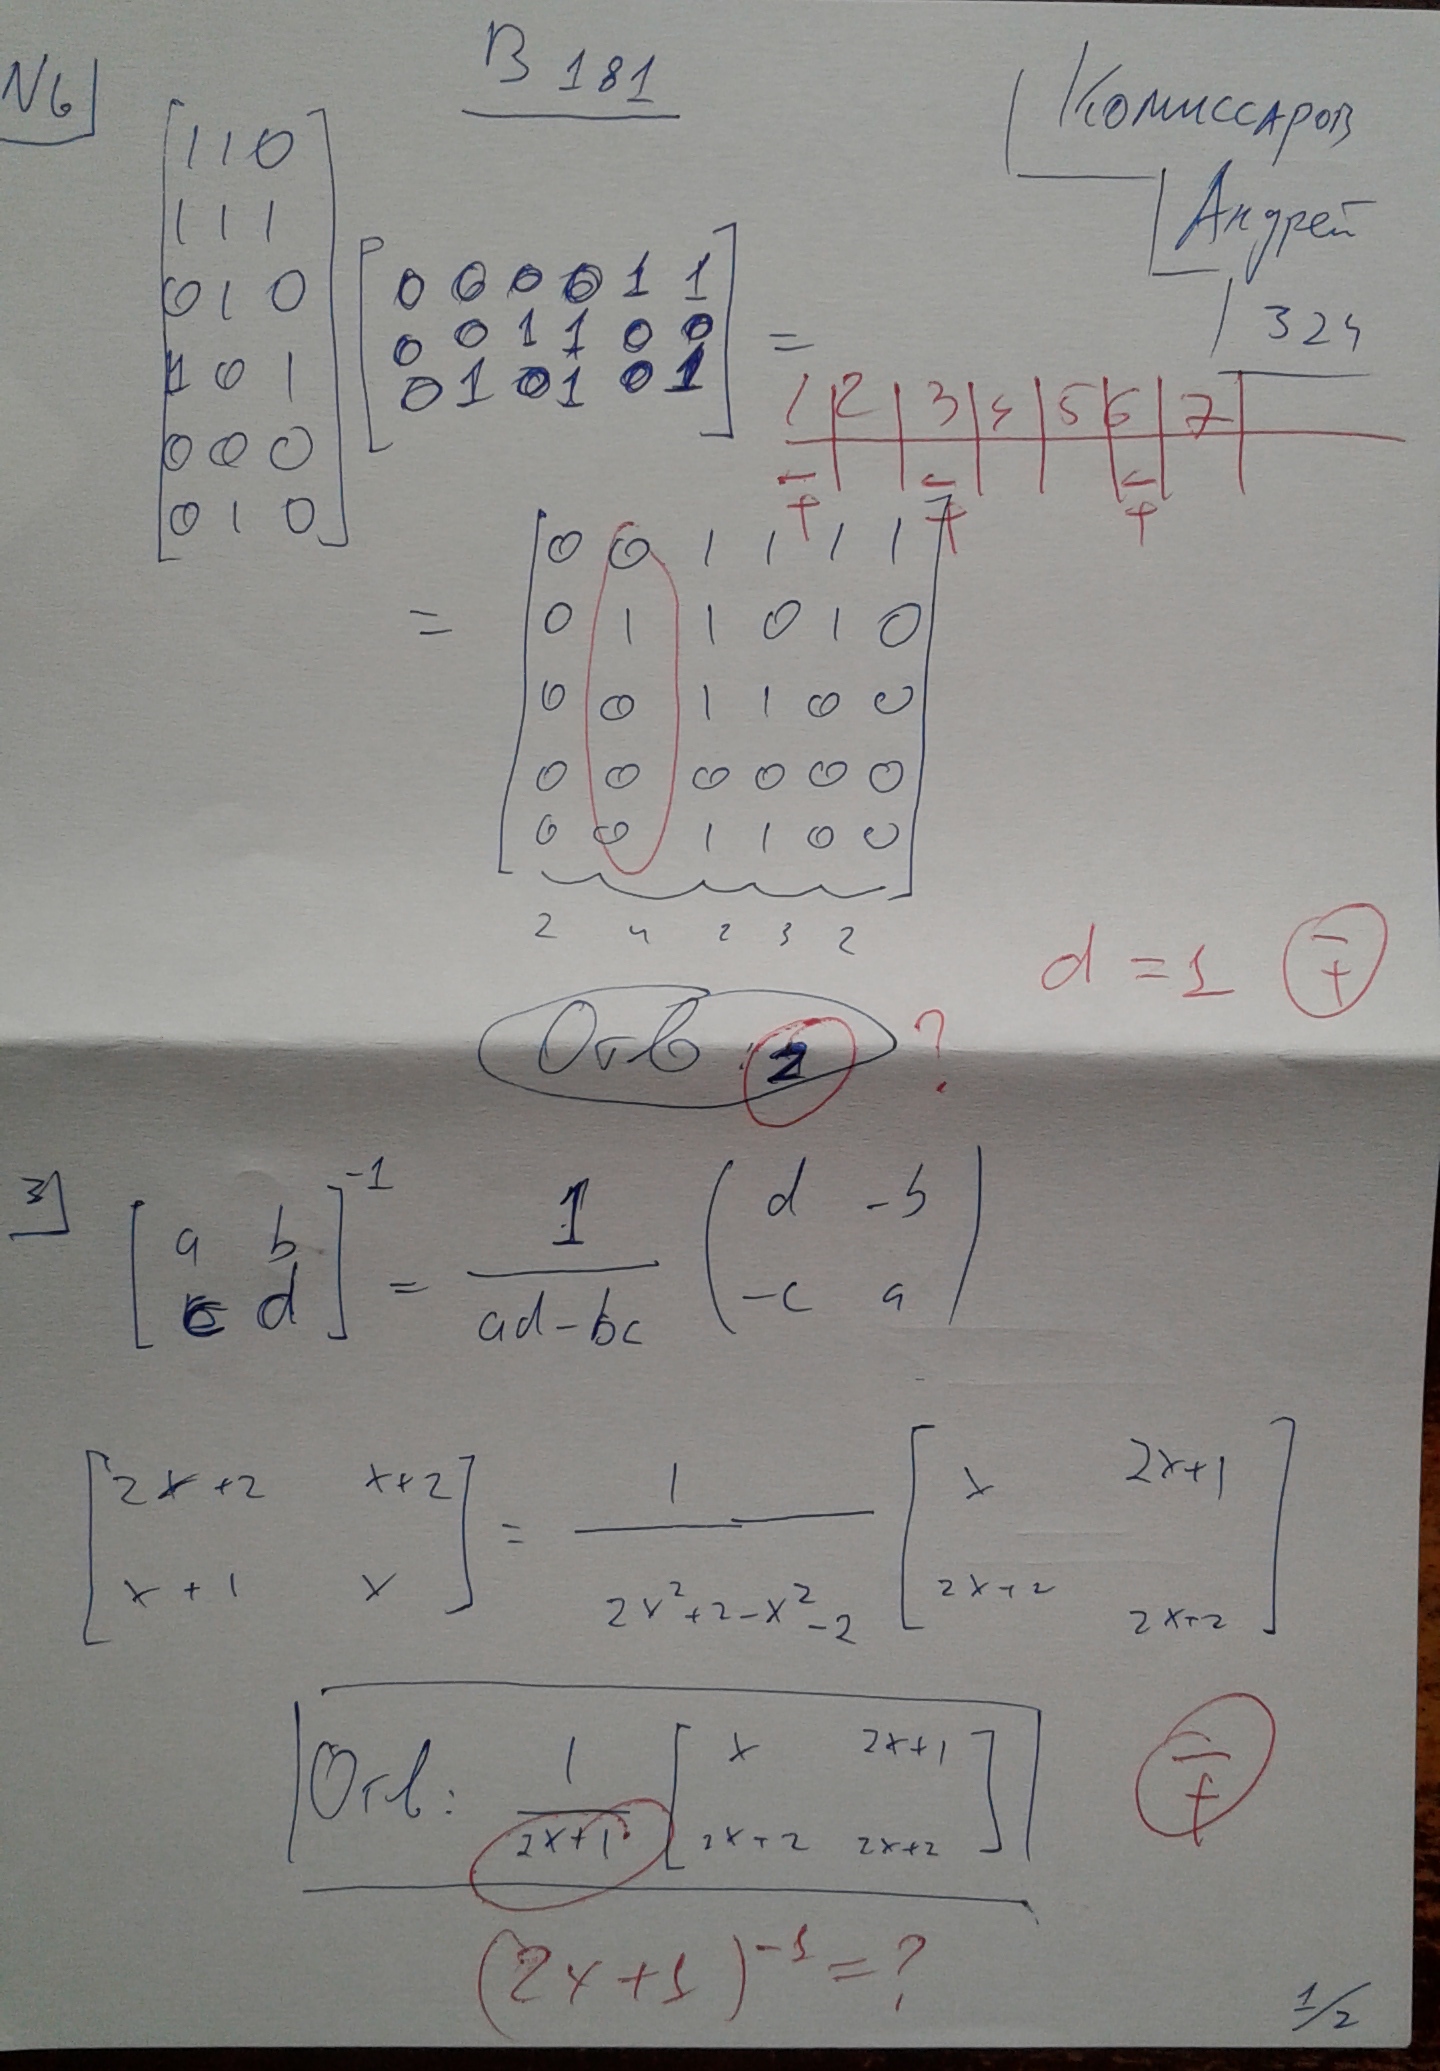 N6
В 181
Комиссаров
Андрей
324
1 1 0
1 1 1
0 1 0
1 0 1
0 0 0
0 1 0
0 0 0 0 1 1
0 0 1 1 0 0
0 1 0 1 0 1
=
1 2 3 4 5 6 7
∓ ∓ ∓
=
0 0 1 1 1 1
0 1 1 0 1 0
0 0 1 1 0 0
0 0 0 0 0 0
0 0 1 1 0 0
2 4 2 3 2
d = 1 ∓
Отв : 2 ?
3
[a b; c d]^-1 = 1/(ad-bc) (d -b; -c a)
[2x+2 x+2; x+1 x] = 1/(2x²+2-x²-2) [x 2x+1; 2x+2 2x+2]
Отв: 1/(2x+1) [x 2x+1; 2x+2 2x+2] ∓
(2x+1)^-1 = ?
1/2